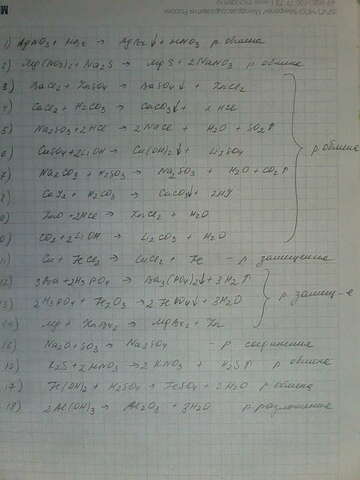 1) AgNO3 + HBr → AgBr↓ + HNO3 р обмена
2) Mg(NO3)2 + Na2S → MgS + 2NaNO3 р обмена
3) BaCl2 + ZnSO4 → BaSO4↓ + ZnCl2
4) CaCl2 + H2CO3 → CaCO3↓ + 2HCl
5) Na2SO3 + 2HCl → 2NaCl + H2O + SO2↑
6) CuSO4 + 2LiOH → Cu(OH)2↓ + Li2SO4
р обмена
7) Na2CO3 + H2SO3 → Na2SO3 + H2O + CO2↑
8) CaI2 + H2CO3 → CaCO3↓ + 2HI
ZnO + 2HCl → ZnCl2 + H2O
CO2 + 2LiOH → Li2CO3 + H2O
11) Cu + FeCl2 → CuCl2 + Fe - р замещение
12) 3Ba + 2H3PO4 → Ba3(PO4)2↓ + 3H2↑
13) 2H3PO4 + Fe2O3 → 2FePO4↓ + 3H2O р замещ-е
14) Mg + ZnBr2 → MgBr2 + Zn
Na2O + SO3 → Na2SO4 - р соединения
K2S + 2HNO3 → 2KNO3 + H2S↑ р обмена
17) Fe(OH)2 + H2SO4 → FeSO4 + 2H2O р обмена
18) 2Al(OH)3 → Al2O3 + 3H2O р-разложение